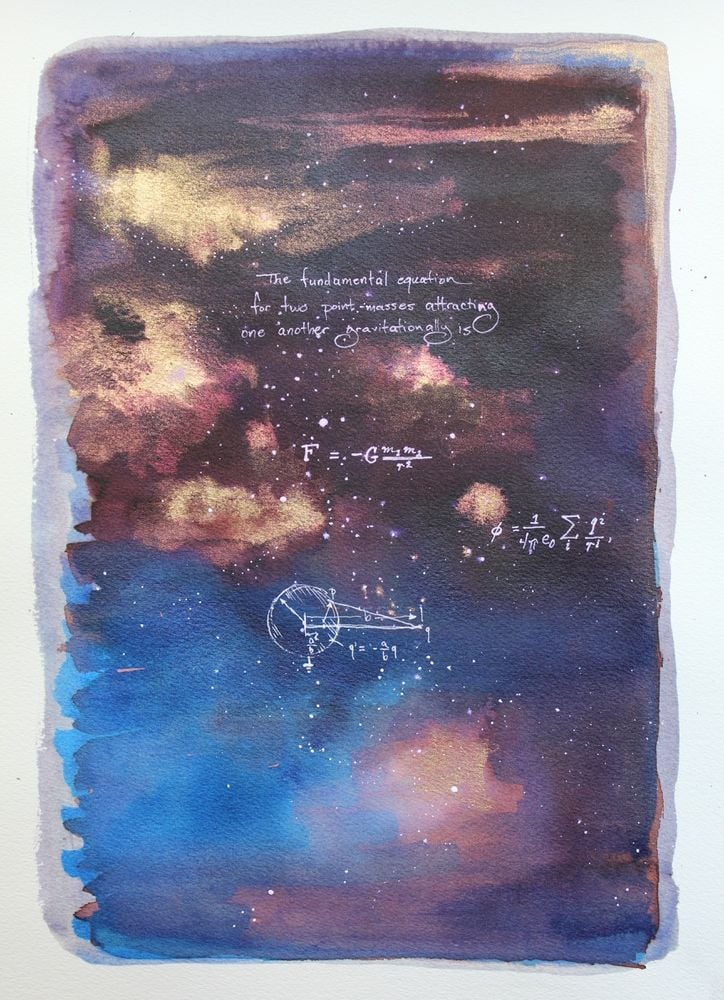 The fundamental equation
for two point-masses attracting
one another gravitationally is
F = -G m₁m₂/r²
ϕ = 1/4πe₀ Σᵢ qi/ri,
P
b
q
a²/b
q' = -a/b q